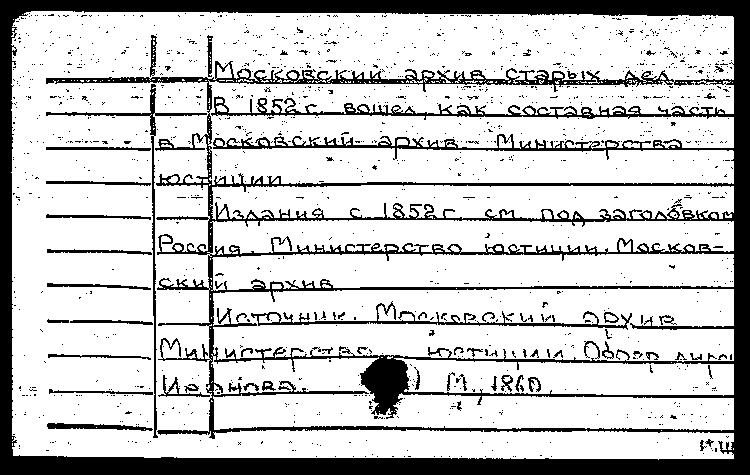 Московский архив старых дел
В 1852 г. вошел, как составная часть
в Московский архив Министерства
юстиции
Издания с 1852 г. см. под заголовком
Россия. Министерство юстиции. Москов-
ский архив
Источник. Московский архив
Министерства юстиции. Обозр.
Иванова. М., 1860.